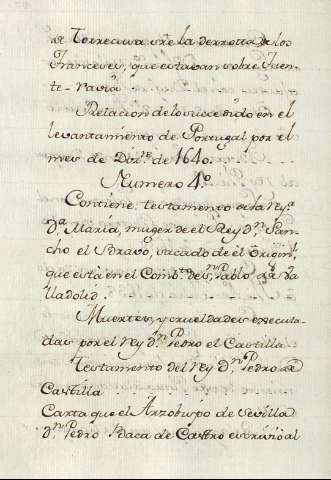 de Torrecusa sre la derrota de los
Franceses, que estavan sobre Fuen-
te-ravia
Relacion de lo succedido en el
levantamiento de Portugal por el
mes de Dizre. de 1640.
Numero 4º
Contiene: testamento de la Rya.
Da. Maria, muger de el Rey dn. San-
cho el Bravo, sacado de el Origl.
que está en el Combto. de Sn. Pablo de Va
lladolid.
Muertes, y crueldades executa-
das por el Rey dn. Pedro el Castilla
Testamento del Rey dn. Pedro de
Castilla
Carta que el Arzobispo de Sevilla
dn. Pedro Baca de Castro escrivio al